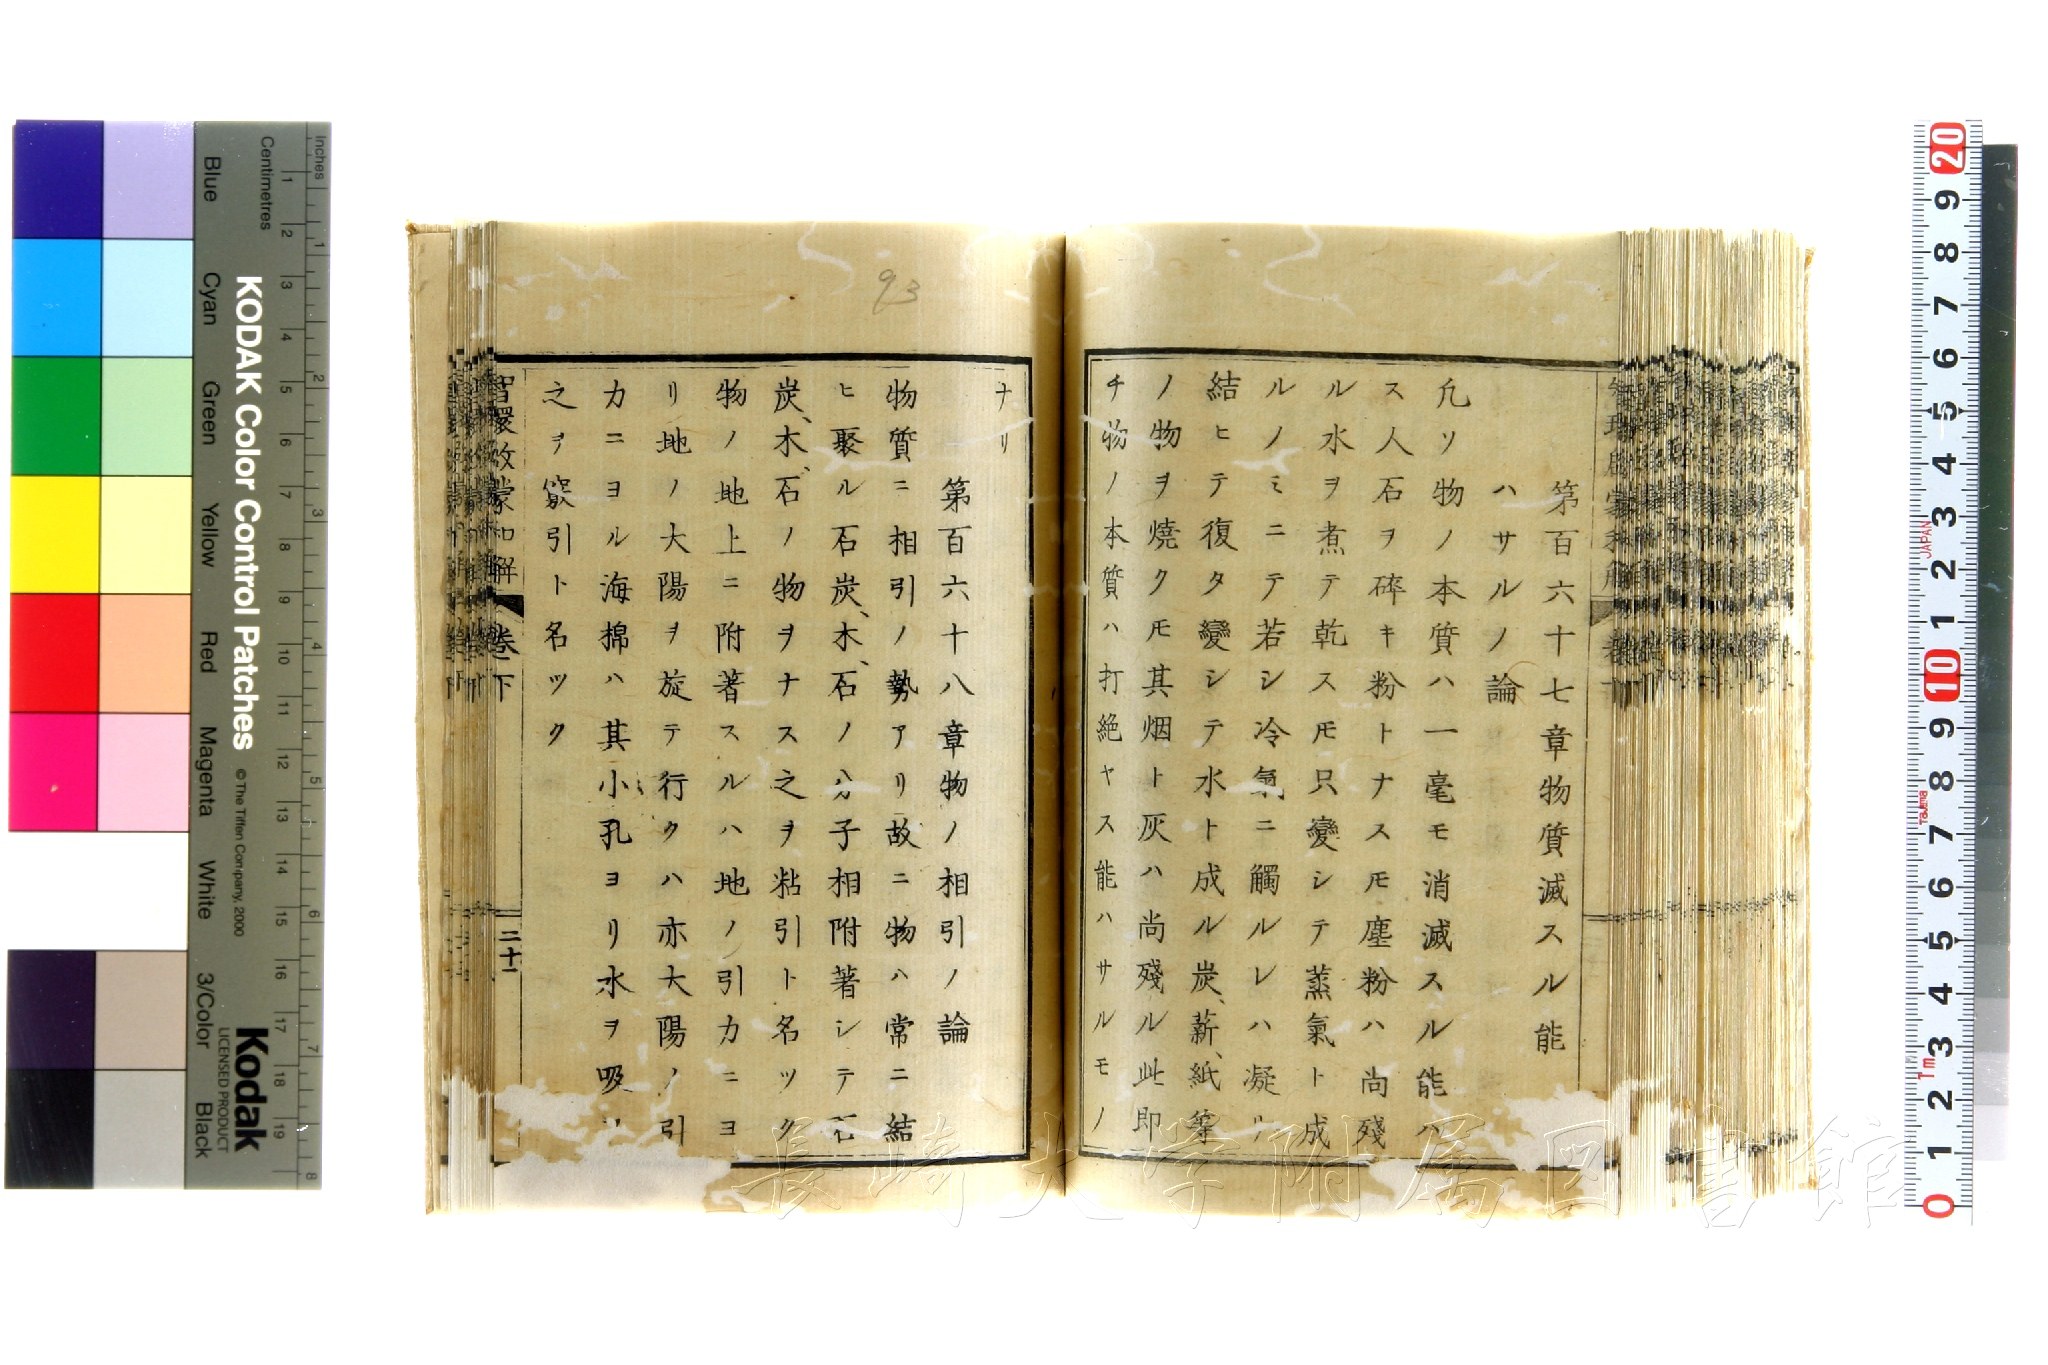 第百六十七章物質滅スル能
ハサルノ論
凡ソ物ノ本質ハ一毫モ消滅スル能ハ
ス人石ヲ碎キ粉トナスモ塵粉ハ尚殘
ル水ヲ煮テ乾スモ只變シテ蒸氣ト成
ルノミニテ若シ冷氣ニ觸ルレハ凝リ
結ヒテ復タ變シテ水ト成ル炭、薪、紙等
ノ物ヲ燒クモ其烟ト灰ハ尚殘ル此即
チ物ノ本質ハ打絶ヤス能ハサルモノ
ナリ
第百六十八章物ノ相引ノ論
物質ニ相引ノ勢アリ故ニ物ハ常ニ結
ヒ聚ル石炭、木、石ノ分子相附著シテ石
炭、木、石ノ物ヲナス之ヲ粘引ト名ツク
物ノ地上ニ附著スルハ地ノ引カニヨ
リ地ノ大陽ヲ旋テ行クハ亦大陽ノ引
カニヨル海棉ハ其小孔ヨリ水ヲ吸フ
之ヲ竅引ト名ツク
智環啓蒙和解 卷下
二十二
93
KODAK Color Control Patches
© The Tiffen Company, 2000
Kodak
LICENSED PRODUCT
Inches
Centimetres
Blue
Cyan
Green
Yellow
Red
Magenta
White
3/Color
Black
1 2 3 4 5 6 7 8 9 10 11 12 13 14 15 16 17 18 19
1 2 3 4 5 6 7 8
20 9 8 7 6 5 4 3 2 1 10 9 8 7 6 5 4 3 2 1 0
JAPAN
Tajima
長崎大学附属図書館